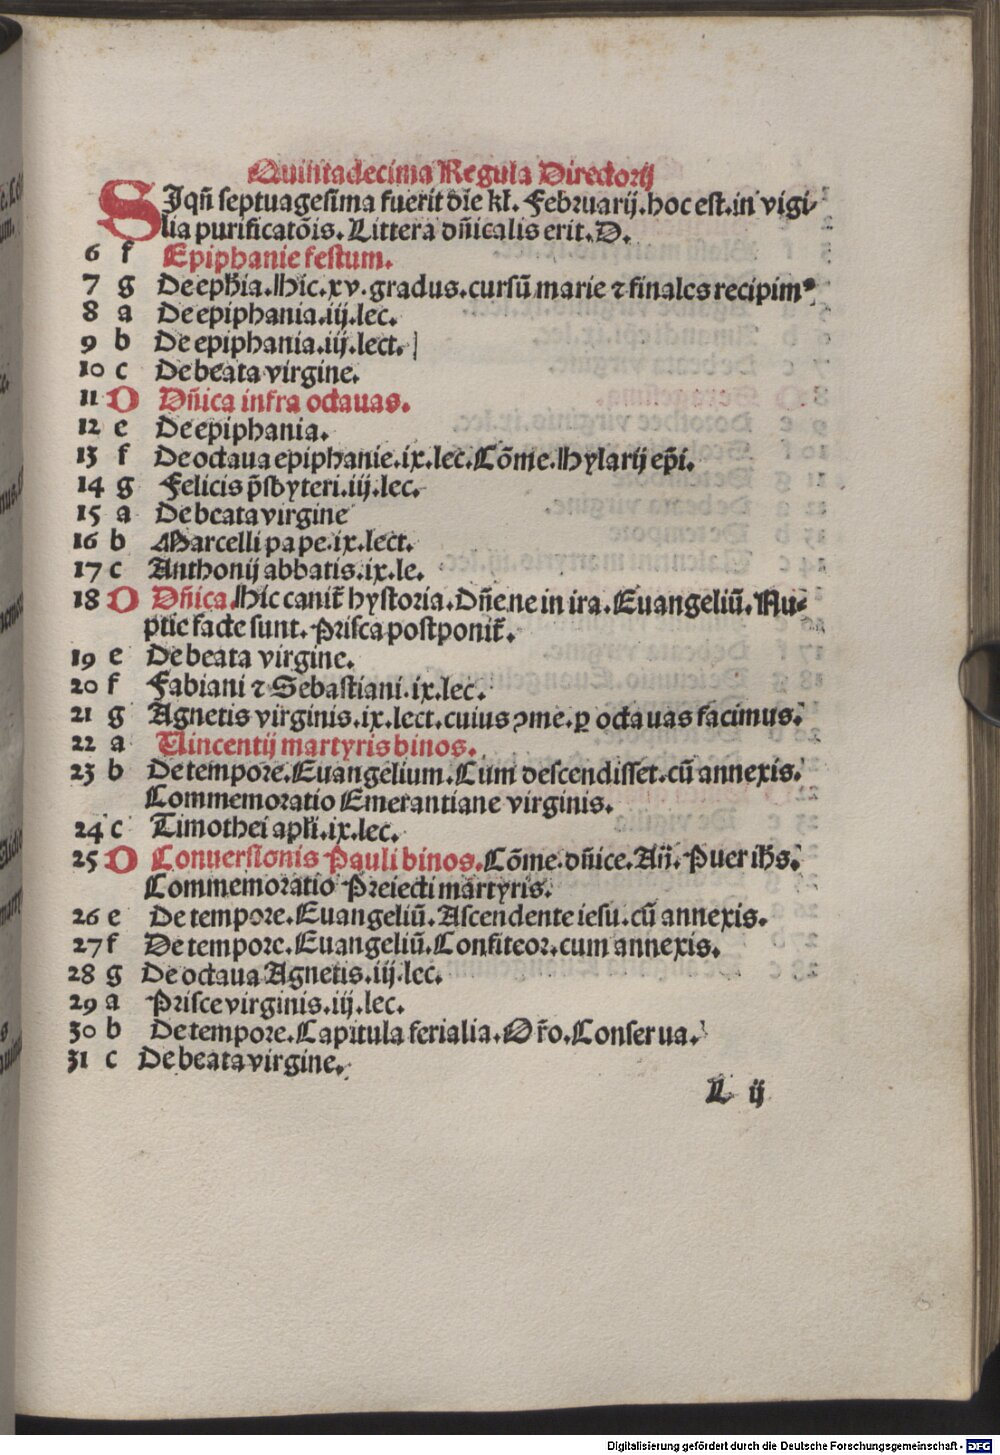 Quintadecima Regula Directorij
SIqn̄ septuagesima fuerit die kl̄. Februarij. hoc est. in vigi-
lia purificatōis. Littera dn̄icalis erit. D.
6 f Epiphanie festum.
7 g De eph̄ia. Hic. xv. gradus. cursū marie ⁊ finales recipimꝰ
8 a De epiphania. iij. lec.
9 b De epiphania. iij. lect.
10 c De beata virgine.
11 D Dn̄ica infra octauas.
12 e De epiphania.
13 f De octaua epiphanie. ix. lec. Cōme. Hylarij ep̄i.
14 g Felicis p̄sbyteri. iij. lec.
15 a De beata virgine
16 b Marcelli pape. ix. lect.
17 c Anthonij abbatis. ix. le.
18 D Dn̄ica. Hic canit᷑ hystoria. Dn̄e ne in ira. Euangeliū. Nu-
ptie facte sunt. Prisca postponit᷑.
19 e De beata virgine.
20 f Fabiani ⁊ Sebastiani. ix. lec.
21 g Agnetis virginis. ix. lect. cuius ꝯme. ꝑ octauas facimus.
22 a Vincentij martyris binos.
23 b De tempore. Euangelium. Cum descendisset. cū annexis.
Commemoratio Emerantiane virginis.
24 c Timothei apl̄i. ix. lec.
25 D Conuersionis Pauli binos. Cōme. dn̄ice. An̄. Puer ih̄s.
Commemoratio Preiecti martyris.
26 e De tempore. Euangeliū. Ascendente iesu. cū annexis.
27 f De tempore. Euangeliū. Confiteor. cum annexis.
28 g De octaua Agnetis. iij. lec.
29 a Prisce virginis. iij. lec.
30 b De tempore. Capitula ferialia. Or̄o. Conserua.
31 c De beata virgine.
L ij
Digitalisierung gefördert durch die Deutsche Forschungsgemeinschaft - DFG